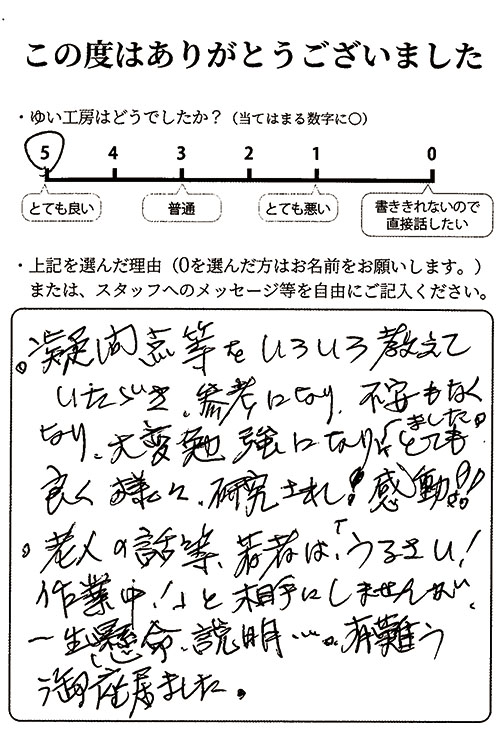 この度はありがとうございました
・ゆい工房はどうでしたか？（当てはまる数字に〇）
5 4 3 2 1 0
とても良い 普通 とても悪い 書ききれないので
直接話したい
・上記を選んだ理由（0を選んだ方はお名前をお願いします。）
または、スタッフへのメッセージ等を自由にご記入ください。
。凝問点等をいろいろ教えて
いただき、参考になり、不安もなく
なり、大変勉強になりました。とても
良く様々、研究され!感動!!
。老人の話等、若者は、「うるさい!
作業中!」と相手にしませんが、
一生懸命、説明…。有難う
御座居ました。